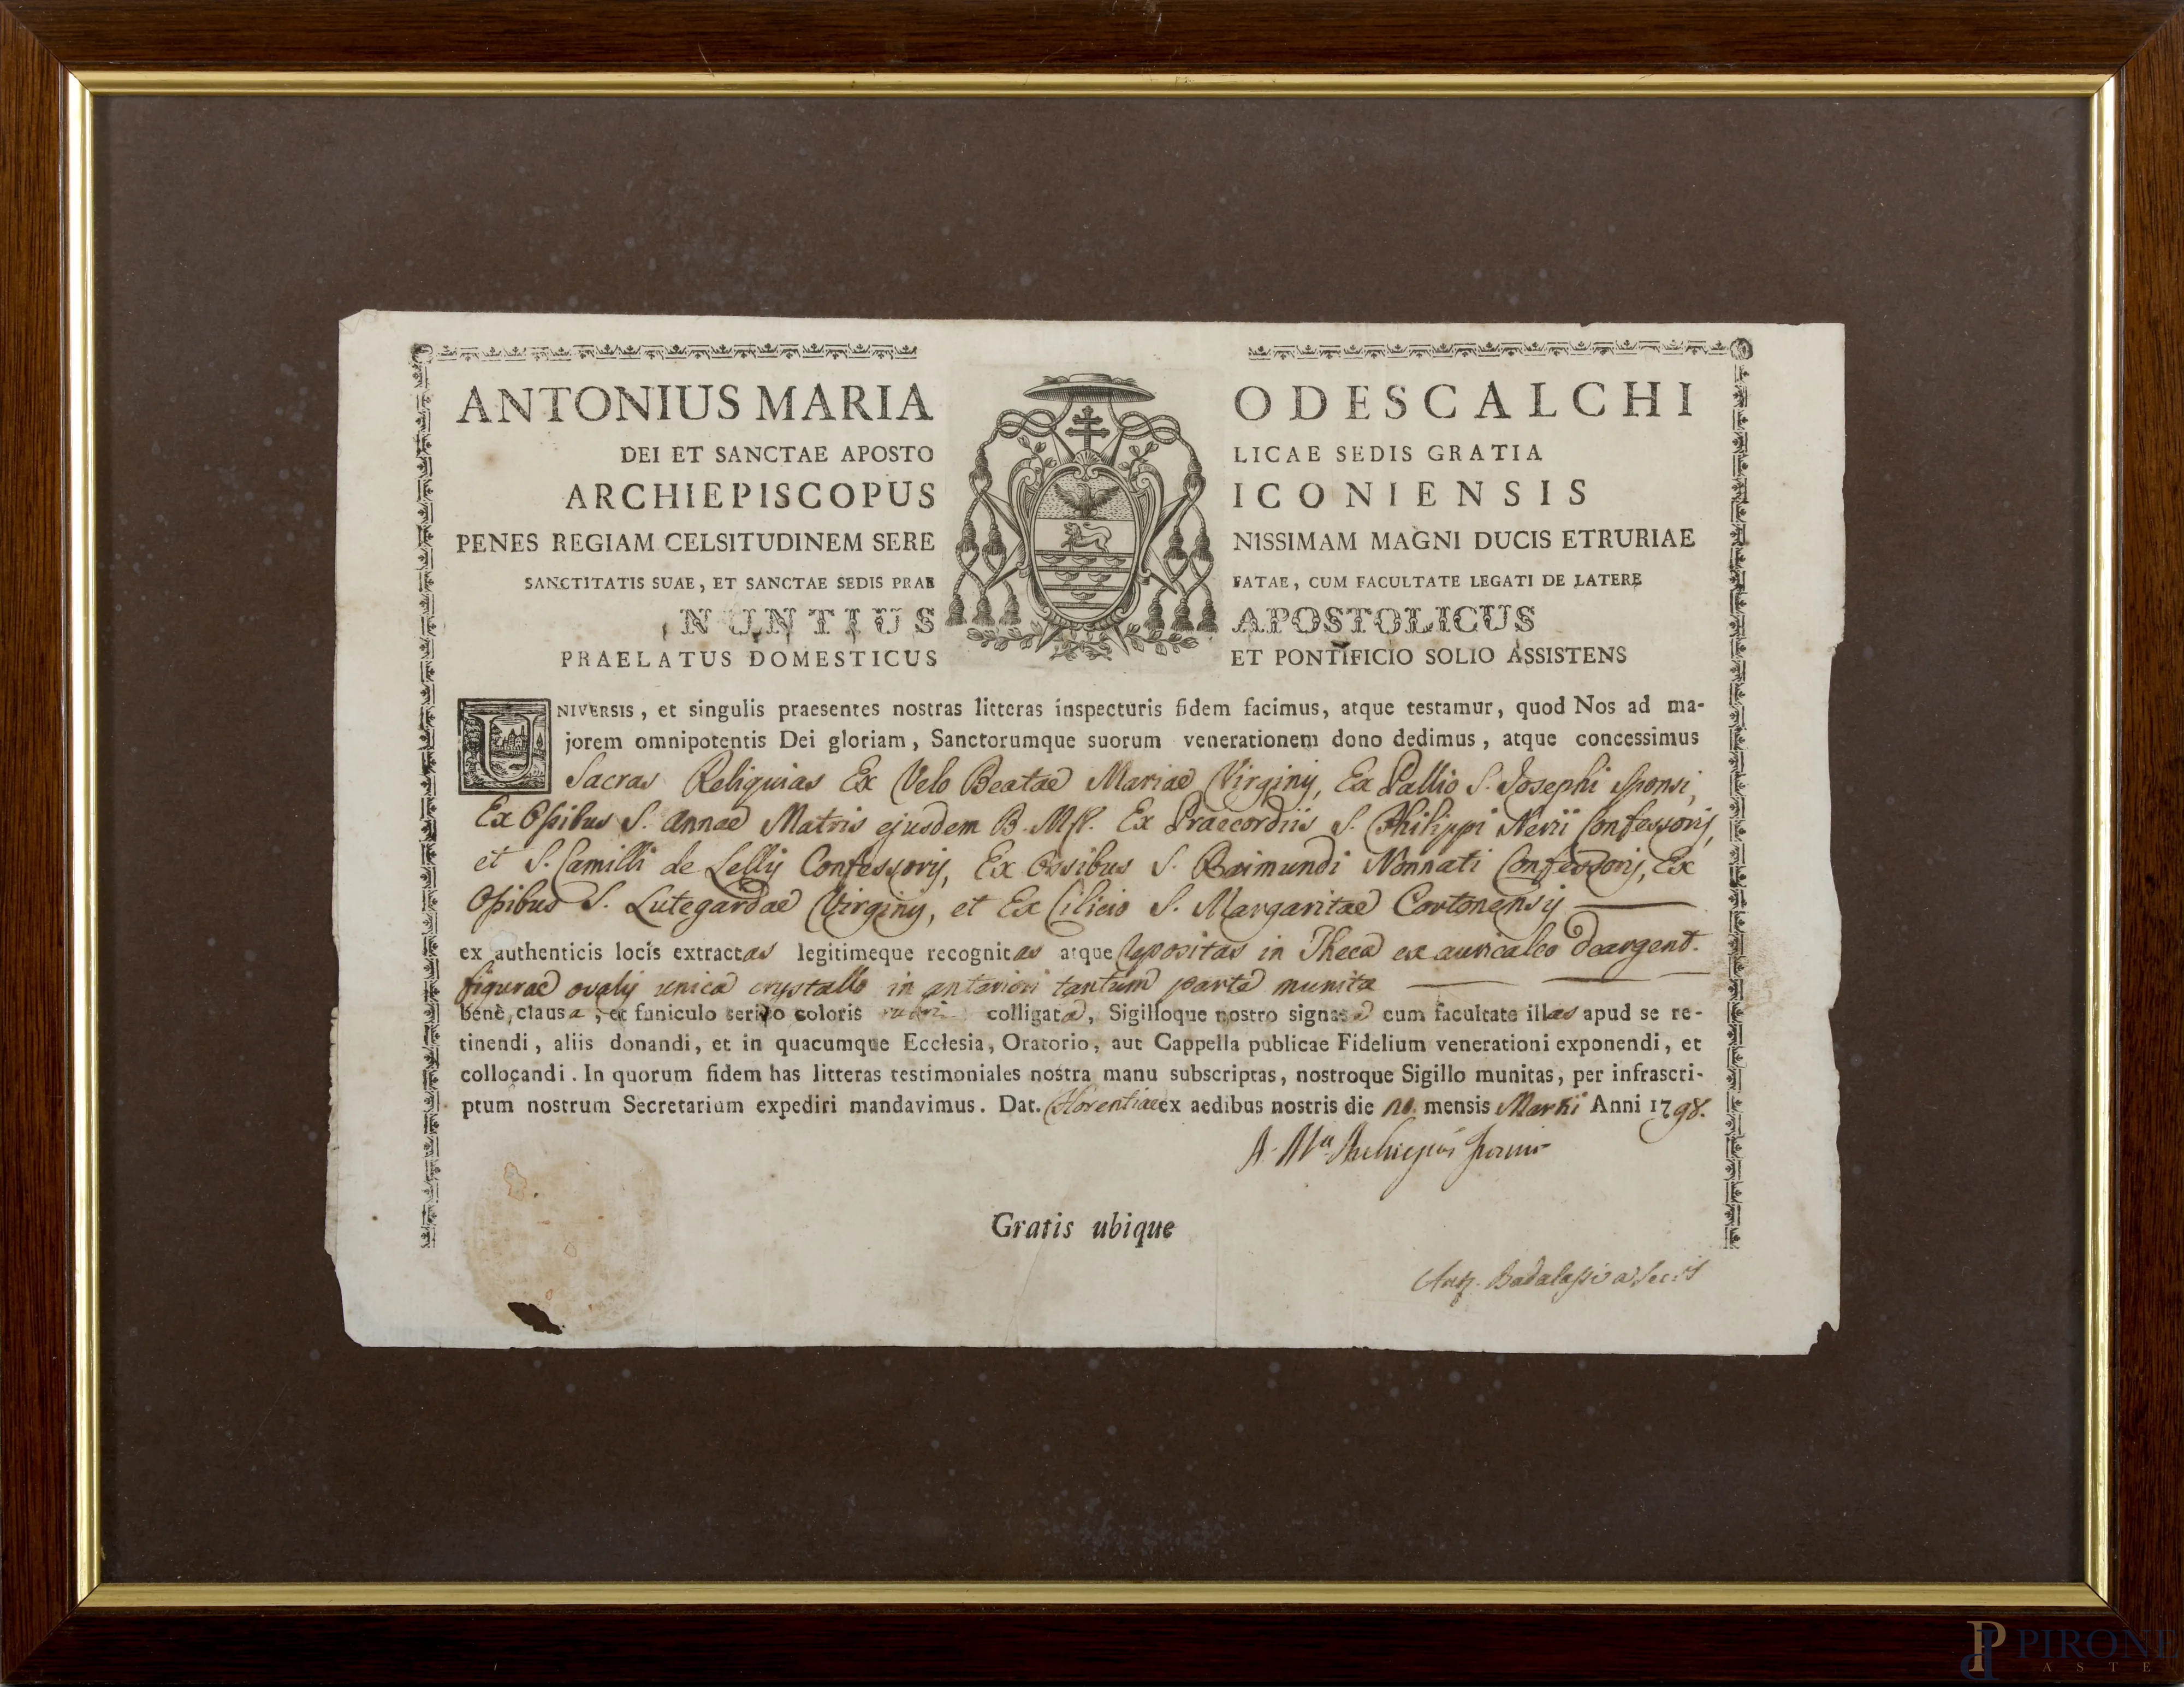 ANTONIUS MARIA ODESCALCHI
DEI ET SANCTAE APOSTO LICAE SEDIS GRATIA
ARCHIEPISCOPUS ICONIENSIS
PENES REGIAM CELSITUDINEM SERE NISSIMAM MAGNI DUCIS ETRURIAE
SANCTITATIS SUAE, ET SANCTAE SEDIS PRAE FATAE, CUM FACULTATE LEGATI DE LATERE
NUNTIUS APOSTOLICUS
PRAELATUS DOMESTICUS ET PONTIFICIO SOLIO ASSISTENS
UNIVERSIS, et singulis praesentes nostras litteras inspecturis fidem facimus, atque testamur, quod Nos ad ma-
jorem omnipotentis Dei gloriam, Sanctorumque suorum venerationem dono dedimus, atque concessimus
Sacras Reliquias Ex Velo Beatae Mariae Virginij, Ex Pallio S. Josephi Sponsi,
Ex Ossibus S. Annae Matris ejusdem B. M. V. Ex Praecordiis S. Philippi Nerii Confessorij,
et S. Camilli de Lellij Confessorij, Ex Ossibus S. Raimundi Nonnati Confessorij, Ex
Ossibus S. Lutegardae Virginij, et Ex Cilicio S. Margaritae Cortonensij
ex authenticis locis extractas legitimeque recognitas atque repositas in Theca ex auricalco deargent.
figurae ovalij unica crystallo in anteriori tantum parte munita
bene, clausa, et funiculo serico coloris rubri colligata, Sigilloque nostro signata cum facultate illas apud se re-
tinendi, aliis donandi, et in quacumque Ecclesia, Oratorio, aut Cappella publicae Fidelium venerationi exponendi, et
collocandi. In quorum fidem has litteras testimoniales nostra manu subscriptas, nostroque Sigillo munitas, per infrascri-
ptum nostrum Secretarium expediri mandavimus. Dat. Florentiae ex aedibus nostris die mensis Martii Anni 1798.
A. Ma.
Gratis ubique
PIRONE
ASTE